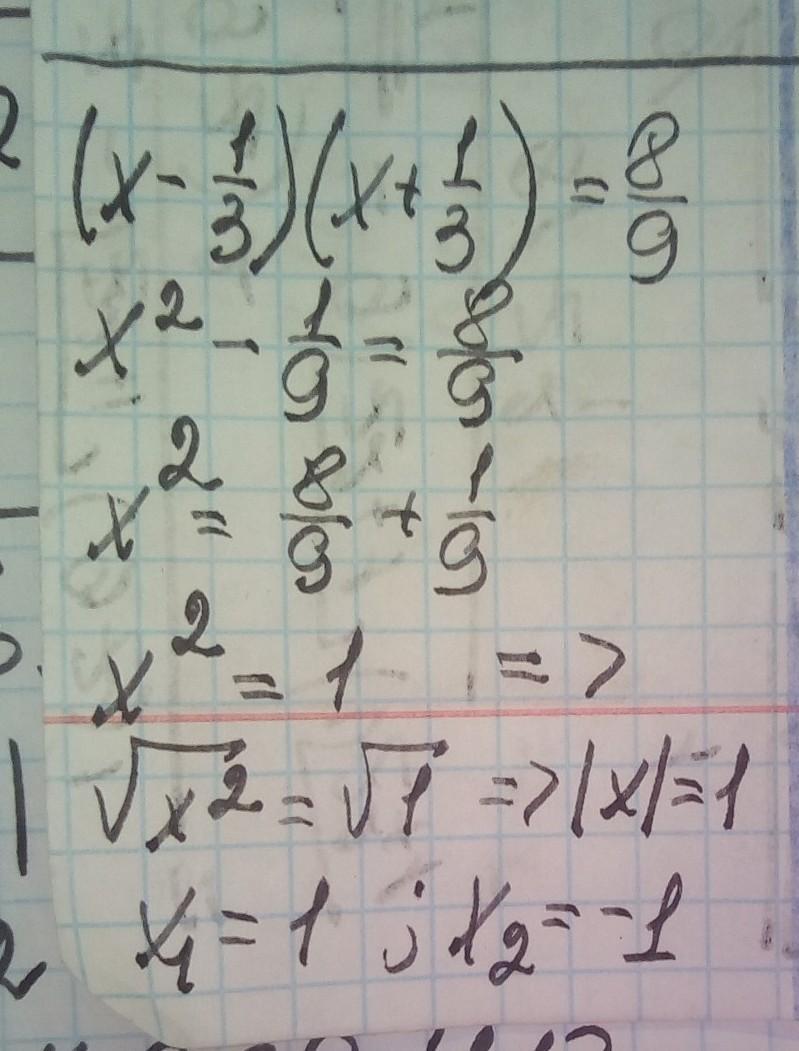 (x - 1/3)(x + 1/3) = 8/9
x² - 1/9 = 8/9
x² = 8/9 + 1/9
x² = 1 =>
√x² = √1 => |x| = 1
x₁ = 1 ; x₂ = -1